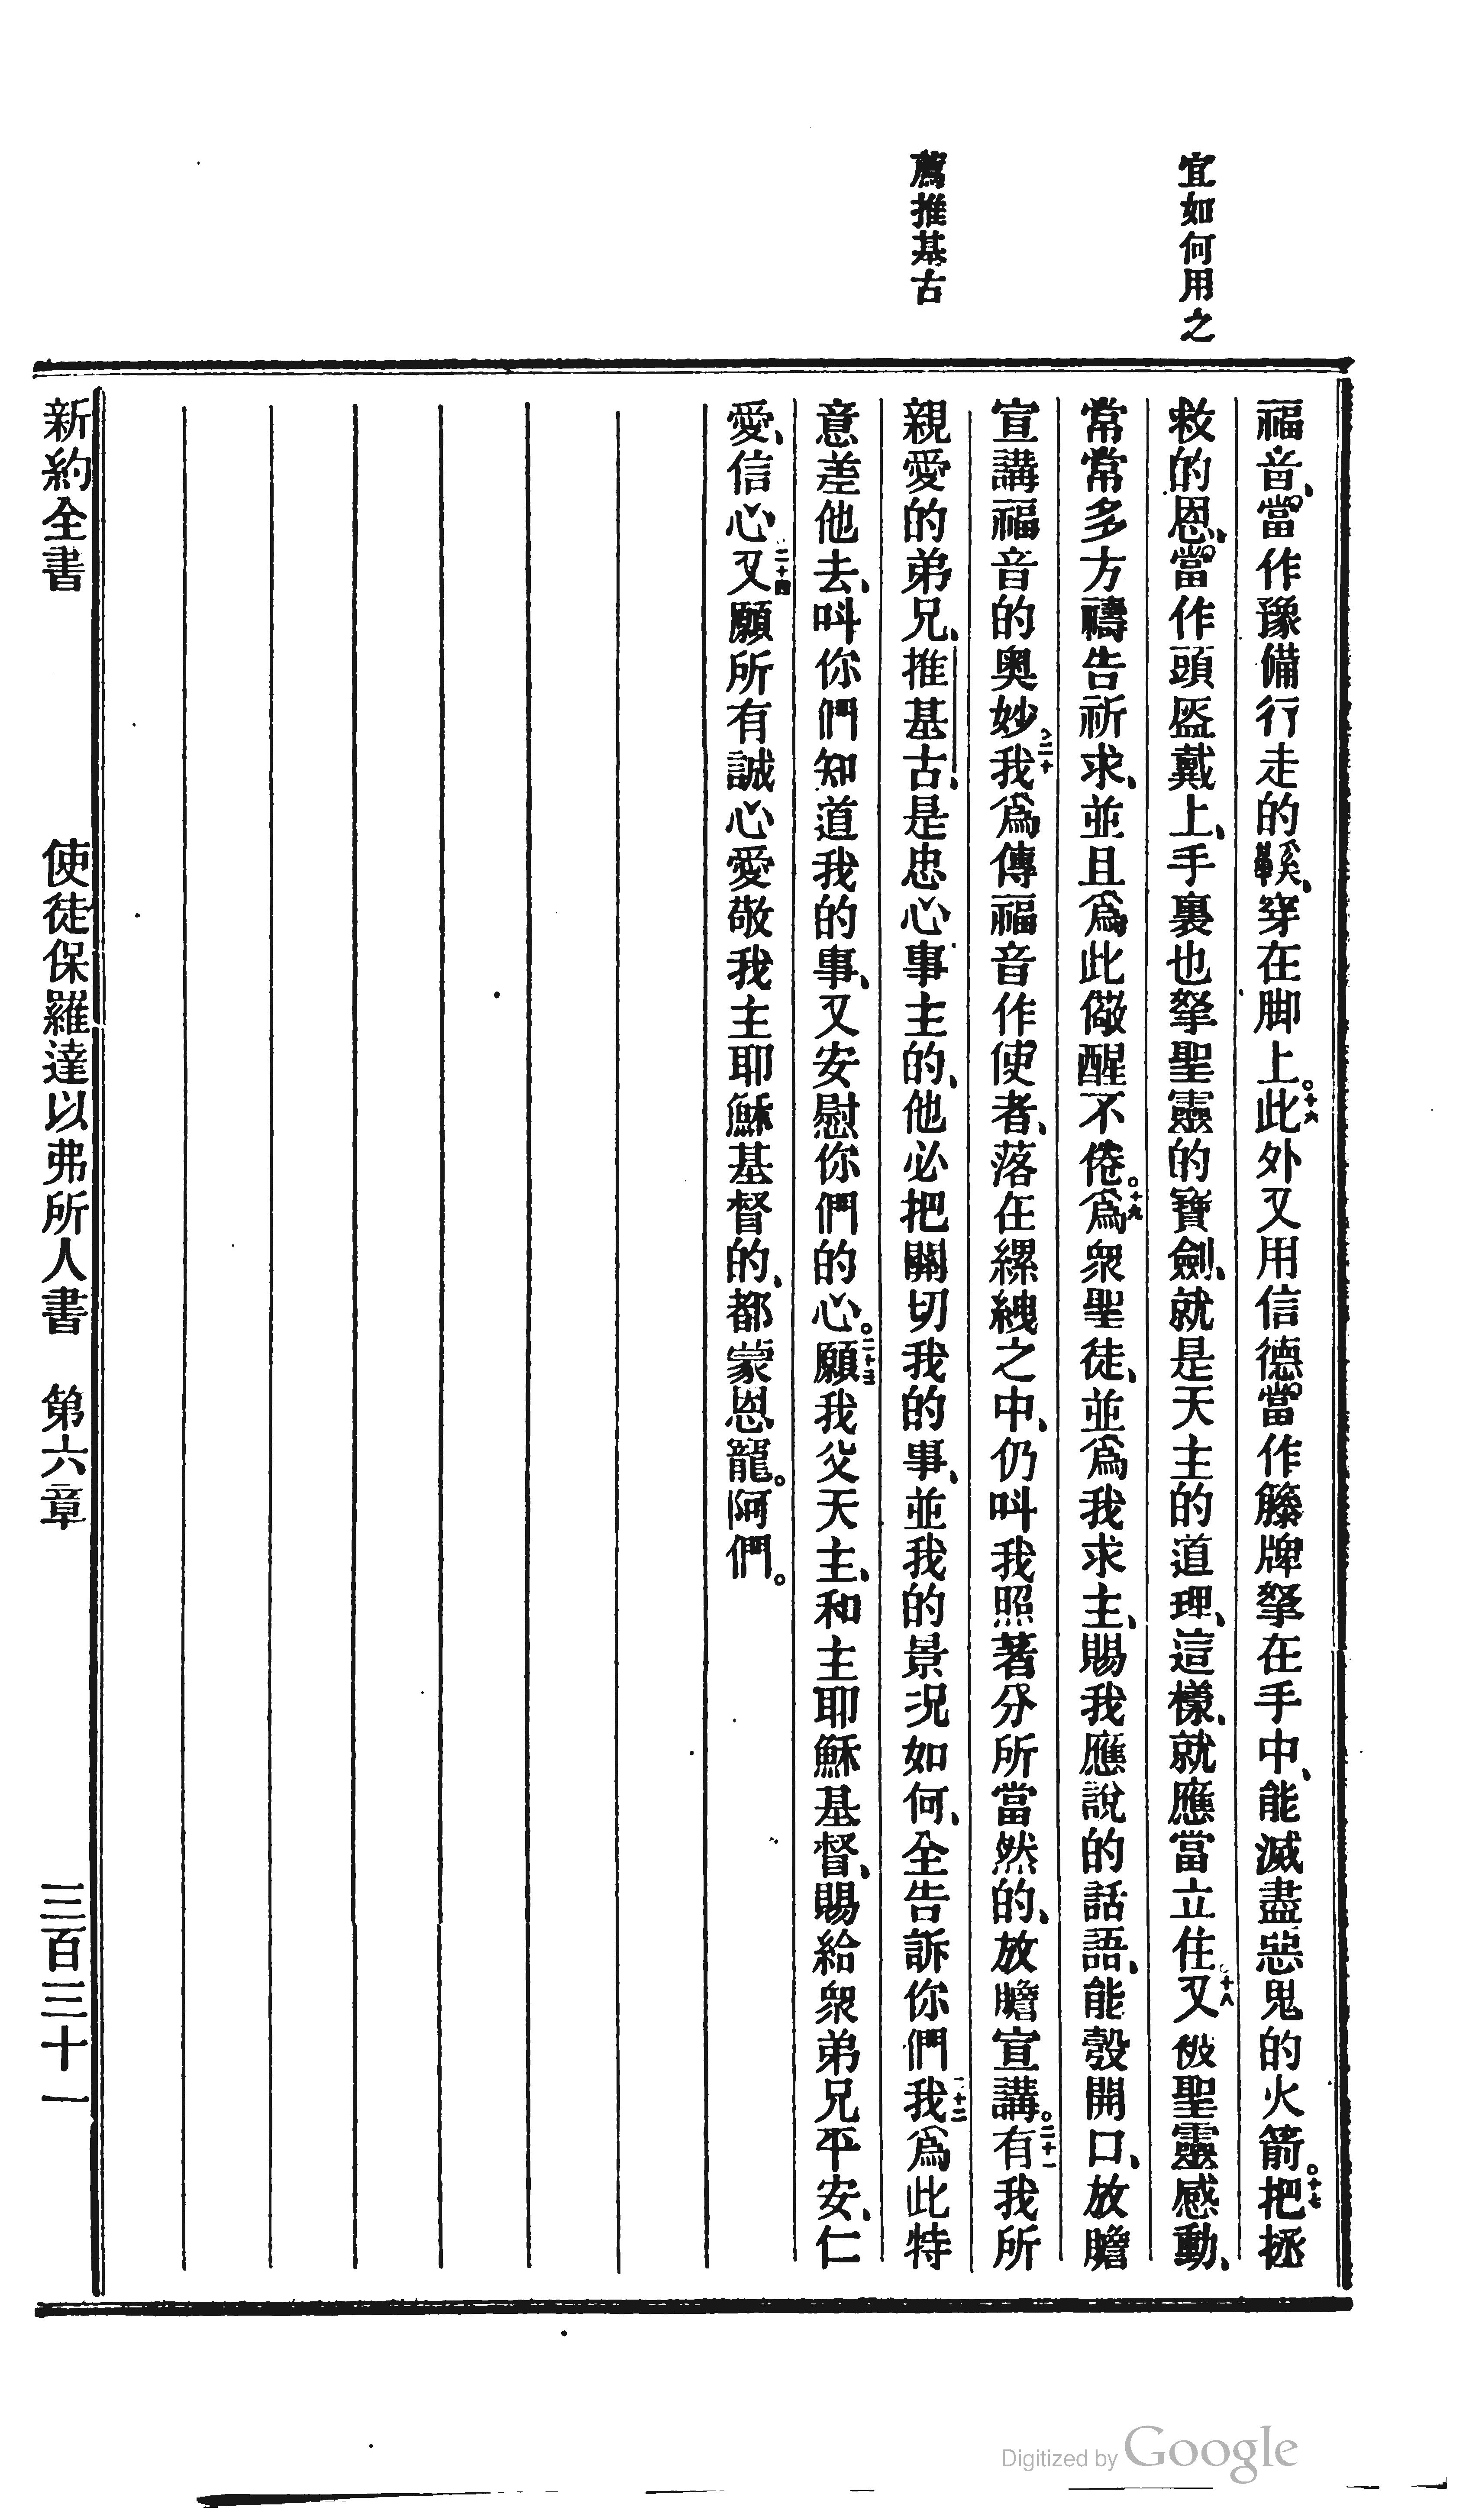 宜如何用之
薦推基古
福音、當作豫備行走的鞵、穿在脚上。十六此外又用信德當作籐牌拏在手中、能滅盡惡鬼的火箭。十七把拯
救的恩、當作頭盔戴上、手裏也拏聖靈的寶劍、就是天主的道理、這樣、就應當立住。十八又被聖靈感動、
常常多方禱告祈求、並且爲此儆醒不倦。十九爲衆聖徒、並爲我求主、賜我應說的話語、能彀開口、放膽
宣講福音的奧妙、二十我爲傳福音作使者、落在縲絏之中、仍叫我照著分所當然的、放膽宣講。二十一有我所
親愛的弟兄、推基古、是忠心事主的、他必把關切我的事、並我的景況如何、全告訴你們二十二我爲此特
意差他去、叫你們知道我的事、又安慰你們的心。二十三願我父天主、和主耶穌基督、賜給衆弟兄平安、仁
愛、信心二十四又願所有誠心愛敬我主耶穌基督的、都蒙恩寵。阿們。
新約全書 使徒保羅達以弗所人書 第六章 三百三十一
Digitized by Google